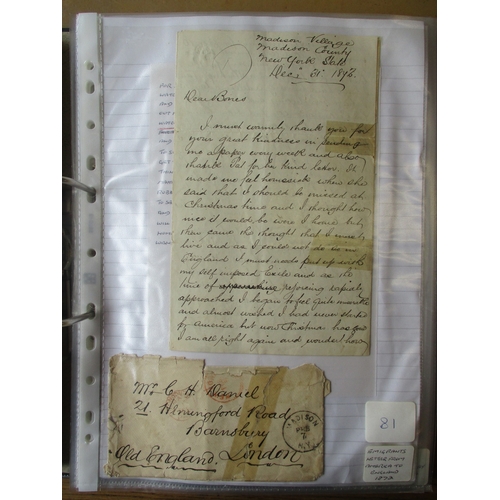 Madison Village
Madison County
New York State
Decr 31st 1872.
Dear Bones
I must warmly thank you for
your great kindness in sending
me a paper every week and also
thank Pat for her kind letter. It
made me feel homesick when she
said that I should be missed at
Christmas time and I thought how
nice it would be were I home but
then came the thought that I must
live and as I could not do so in
England I must needs put up with
my self imposed Exile and as the
time of rejoicing rapidly
approached I began to feel quite
and almost wished I had never started
for America but now Christmas has gone
I am all right again and wonder how
Mr C H Daniel
21 Hemingford Road
Barnsbury
London
Old England
MADISON
N.Y.
81
EMIGRANTS
LETTER FROM
AMERICA TO
ENGLAND
1872